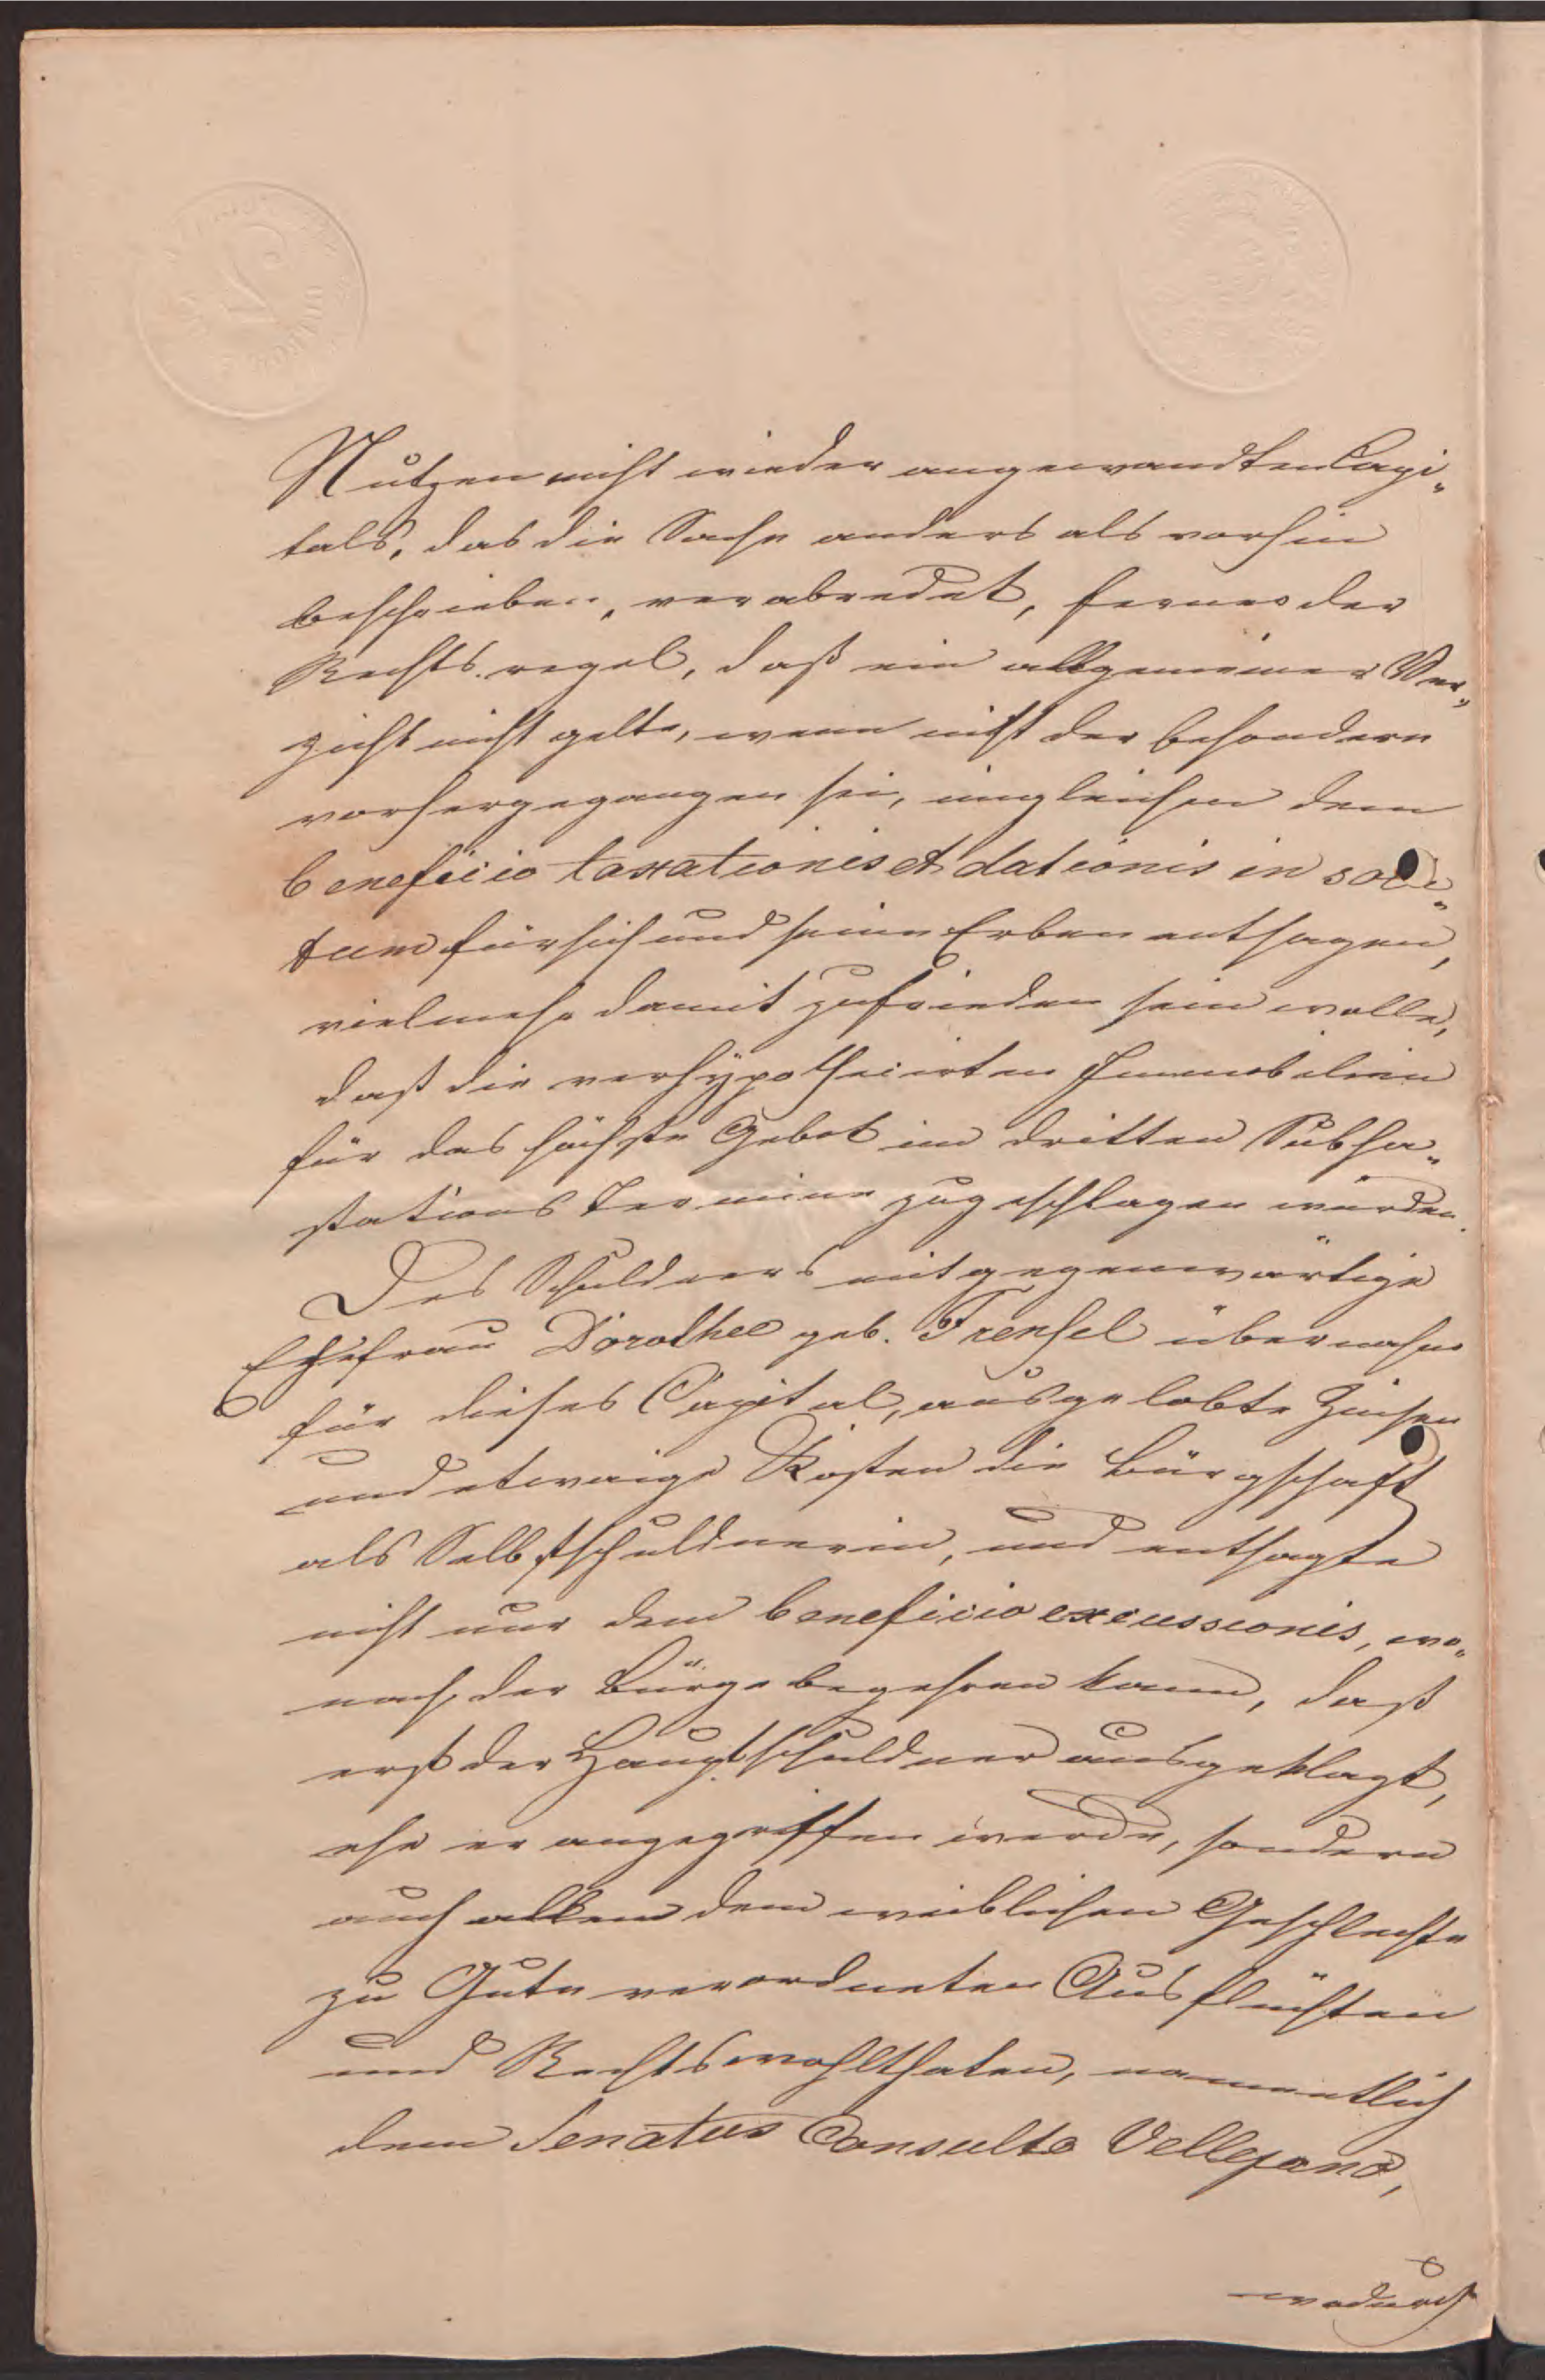 Nutzen nicht wieder angewandten Capi„
tals, das die Sache anders als vorhin
beschrieben, verabredet, ferner der
Rechts.regel, daß ein allgemeiner Ver„
zicht nicht gelte, wenn nicht der besondere
vorhergegangen sei, imgleichen dem
beneficio taxationis et dationis in solu„
tum für sich und seine Erben entsagen,
vielmehr damit zufrieden sein wolle,
daß die verhÿpothecirten Immobilien
für das höchste Gebot im dritten Subha„
stations Termine zugeschlagen würden.
Des Schuldners mitgegenwärtige
Ehefrau Dorothee geb. Frensel übernahm
für dieses Capital, ausgelobte Zinsen
und etwaige Kosten die Bürgschaft
als Selbstschuldnerin, und entsagte
nicht nur dem beneficio excussionis, wo„
nach der Bürge begehren kann, daß
erst der Hauptschuldner ausgeklagt,
ehe er angegriffen werde, sondern
auch allen dem weiblichen Geschlechte
zu Gute verordneten Ausflüchten
und Rechtswohlthaten, namentlich
dem Senatus Consulto Vellejano,
wodurch